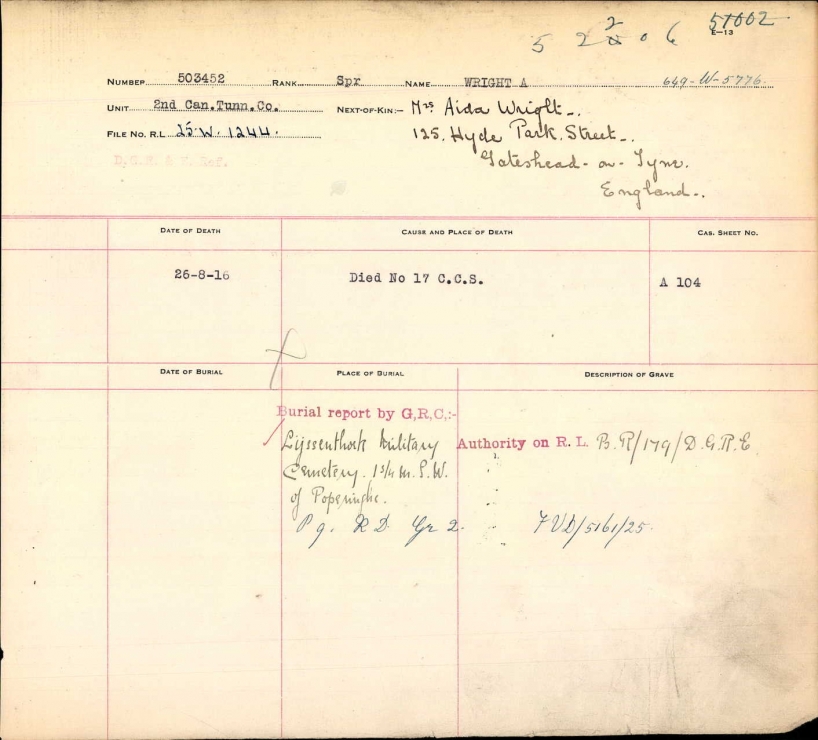 5 2 2 0 6 51002
E-13
NUMBER 503452 RANK Spr NAME WRIGHT A 649-W-5776.
UNIT 2nd Can.Tunn.Co. NEXT-OF-KIN:- Mrs Aida Wright-.
FILE NO. R.L. 25.W.1244. 125, Hyde Park Street-.
Gateshead-on-Tyne.
England-.
DATE OF DEATH CAUSE AND PLACE OF DEATH CAS. SHEET NO.
26-8-16 Died No 17 C.C.S. A 104
DATE OF BURIAL PLACE OF BURIAL DESCRIPTION OF GRAVE
Burial report by G,R,C,:-
Lijssenthoek Military Authority on R. L. B.R/179/D.G.R.E
Cemetery. 1 3/4 m. S.W.
of Poperinghe.
P 9. R D. Gr 2. 7VD/5161/25.